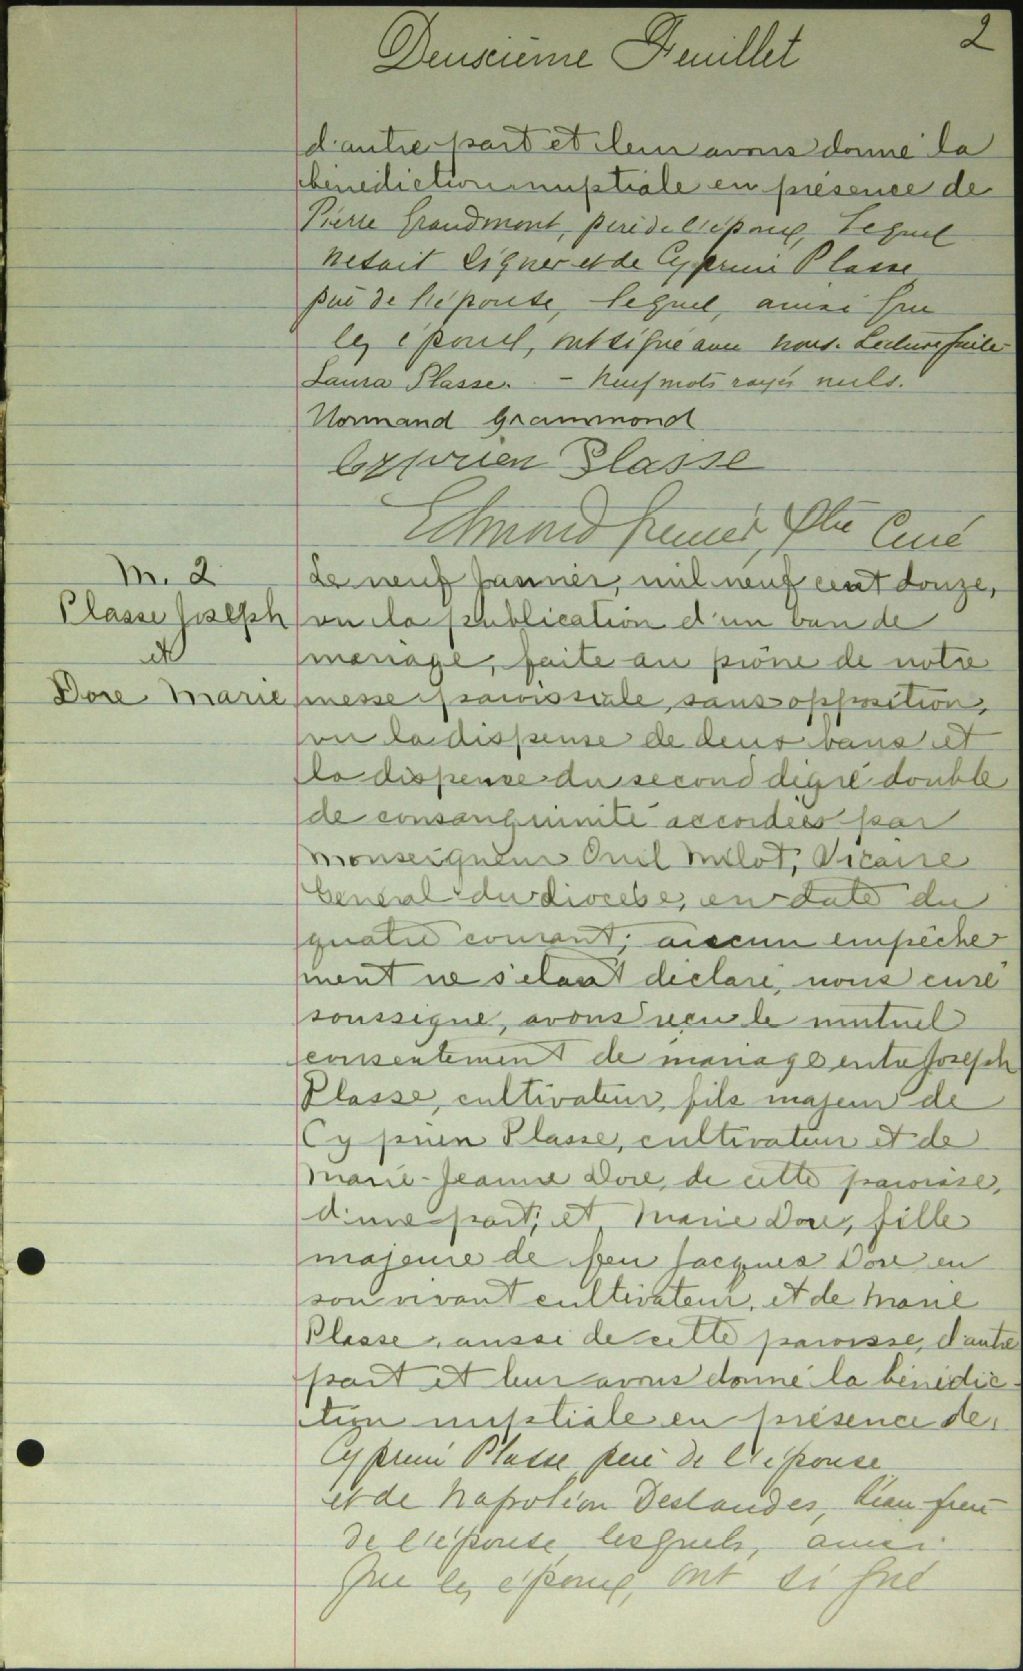 Deuxième Feuillet
2
d'autre part et leur avons donné la
bénédiction nuptiale en présence de
Pierre Grandmont, père de l'époux, lequel
ne sait signer et de Cyprien Plasse
père de l'épouse, lequel, ainsi que
les époux, ont signé avec nous. Lecture faite
Laura Plasse. - Neuf mots rayés nuls.
Normand Grammond
Cyprien Plasse
Edmond Grenier, Ptre Curé
M. 2
Plasse Joseph
et
Dore Marie
Le neuf Janvier, mil neuf cent douze,
vu la publication d'un ban de
mariage, faite au prône de notre
messe paroissiale, sans opposition,
vu la dispense de deux bans et
la dispense du second dégré double
de consanguinité accordées par
Monseigneur Onil Milot, Vicaire
Général du diocèse, en date du
quatre courant; aucun empêche-
ment ne s'étant déclaré, nous curé
soussigné, avons reçu le mutuel
consentement de mariage entre Joseph
Plasse, cultivateur, fils majeur de
Cyprien Plasse, cultivateur et de
Marie-Jeanne Dore, de cette paroisse,
d'une part; et Marie Dore, fille
majeure de feu Jacques Dore en
son vivant cultivateur, et de Marie
Plasse, aussi de cette paroisse, d'autre
part et leur avons donné la bénédic-
tion nuptiale en présence de
Cyprien Plasse père de l'épouse
et de Napoléon Deslandes, beau-frère
de l'épouse, lesquels, ainsi
que les époux, ont signé